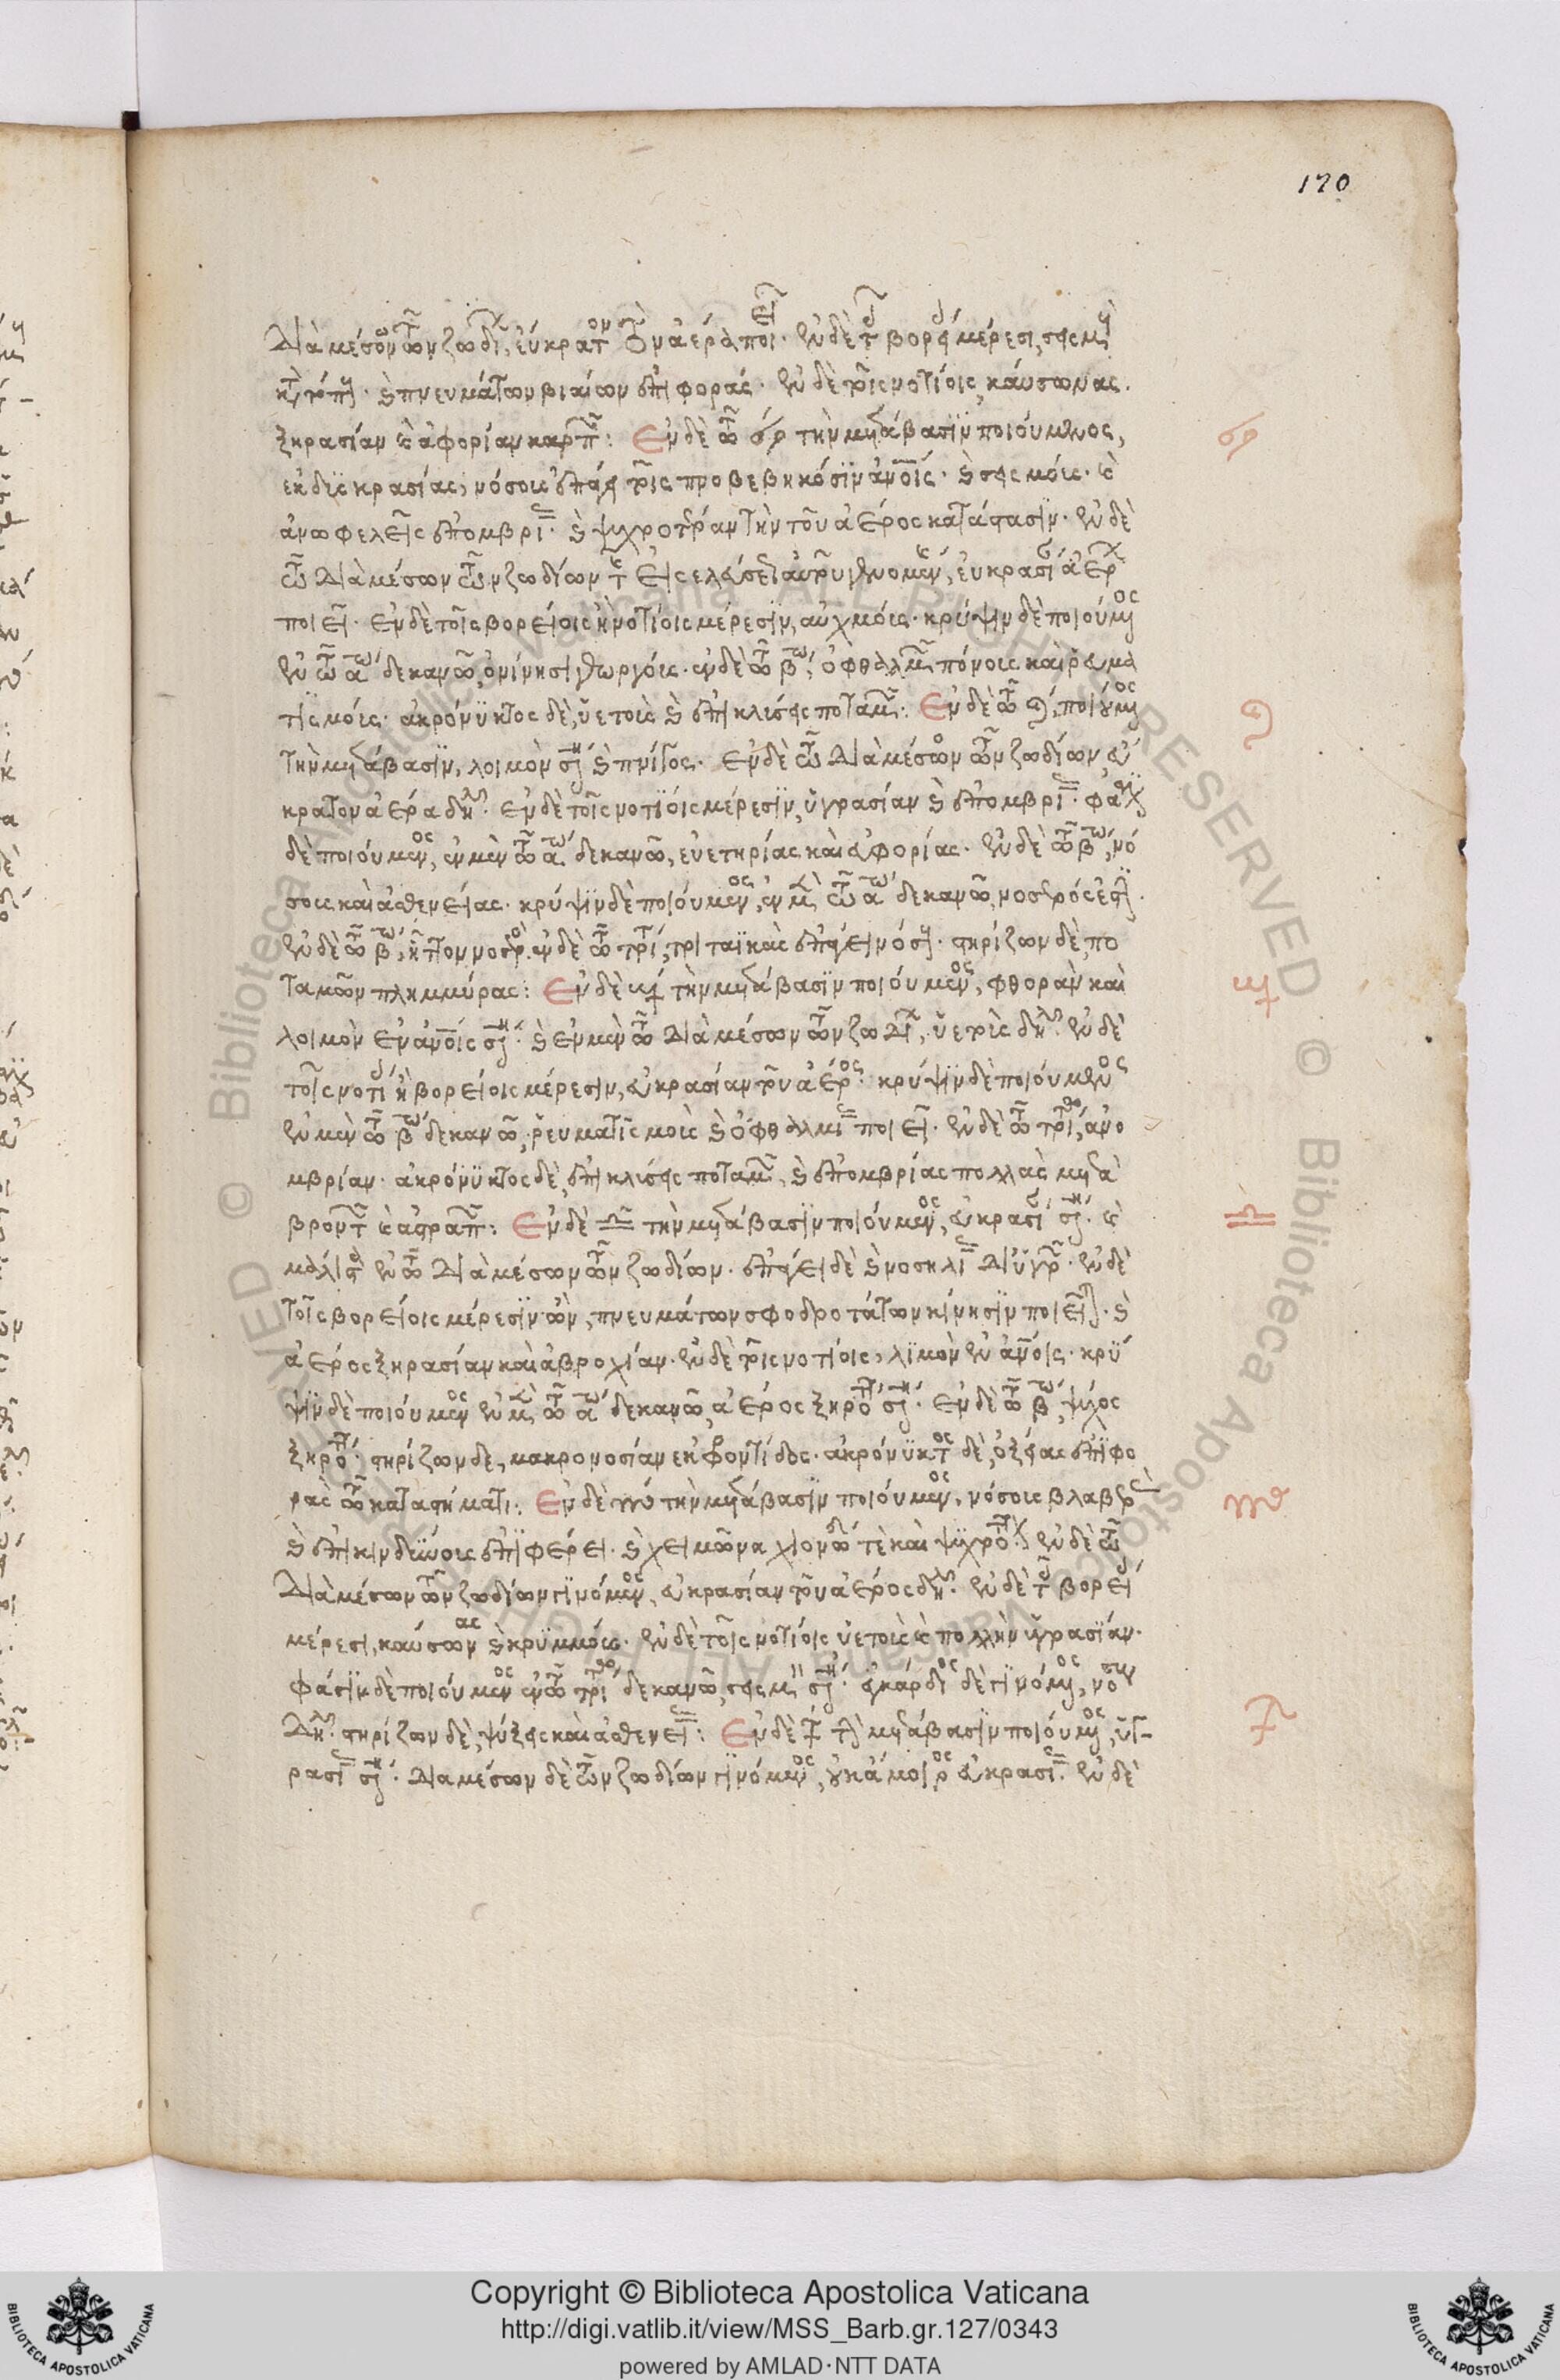 170
Διὰ μέσου τῶν ζωδί, εὔκρατον τὸν ἀέρα ποιεῖ. ἐν δὲ τοῖς βορείοις μέρεσι, σεισμοὺς
πνευμάτων βιαίων ἐπιφοράς. ἐν δὲ τοῖς νοτίοις, καύσωνας.
ξηρασίαν καὶ ἀφορίαν καρπῶν: Ἐν δὲ τῶ ♋ τὴν μετάβασιν ποιούμενος,
♋
νόσους ἐπάγει τοῖς προβεβηκόσιν ἀνοις. καὶ σεισμούς. καὶ
ἀνωφελεῖς ἐπομβρίας. καὶ ψυχροτέραν τὴν τοῦ ἀέρος κατάστασιν. ἐν δὲ
τῶ διὰ μέσων τῶν ζωδίων εὐκρασίαν ἀέρος
ποιεῖ. ἐν δὲ τοῖς βορείοις ἢ νοτίοις μέρεσιν, αὐχμούς. κρύψιν δὲ ποιούμενος
ἐν τῶ αω δεκανῶ, ἐν δὲ τῶ βω, ὀφθαλμῶν πόνους καὶ ῥευμα
τισμούς. ἀκρόνυκτος δὲ, ὑετοὺς καὶ ἐπικλύσεις ποταμῶν: Ἐν δὲ τῶ ♌, ποιούμενος
♌
τὴν μετάβασιν, λοιμὸν σημαίνει καὶ πνίγος. ἐν δὲ τῶ διὰ μέσων τῶν ζωδίων εὔ
κρατον ἀέρα δηλοῖ. ἐν δὲ τοῖς νοτίοις μέρεσιν, ὑγρασίαν καὶ ἐπομβρίας. φάσιν
δὲ ποιούμενος, ἐν μὲν τῶ αω δεκανῶ, εὐετηρίας καὶ εὐφορίας. ἐν δὲ τῶ βω, νό
σους καὶ ἀσθενείας. κρύψιν δὲ ποιούμενος, ἐν μὲν τῶ αω δεκανῶ, νοσερός ἐστι.
ἐν δὲ τῶ βω, ἧττον νοσερός. ἐν δὲ τῶ τρί, τριταϊκὰς ἐπάγει νόσους. στηρίζων δὲ, πο
ταμῶν πλημμύρας: Ἐν δὲ ♍ τὴν μετάβασιν ποιούμενος, φθορὰν καὶ
♍
λοιμὸν ἐν ἀνοις σημαίνει. καὶ ἐν μὲν τῶ διὰ μέσων τῶν ζωδίων, ὑετοὺς δηλοῖ. ἐν δὲ
τοῖς νοτίοις ἢ βορείοις μέρεσιν, εὐκρασίαν τοῦ ἀέρος. κρύψιν δὲ ποιούμενος
ἐν μὲν τῶ βω δεκανῶ, ῥευματισμοὺς καὶ ὀφθαλμίας ποιεῖ. ἐν δὲ τῶ τρίτω, ἀνο
μβρίαν. ἀκρόνυκτος δὲ, ἐπικλύσεις ποταμῶν, καὶ ἐπομβρίας πολλὰς μετὰ
βροντῶν καὶ ἀστραπῶν: Ἐν δὲ ♎ τὴν μετάβασιν ποιούμενος, εὐκρασίαν σημαίνει. καὶ
♎
μάλιστα ἐν τῶ διὰ μέσων τῶν ζωδίων. ἐπάγει δὲ καὶ νοσηλίας ἐν δὲ
τοῖς βορείοις μέρεσιν ὢν, πνευμάτων σφοδροτάτων κίνησιν ποιεῖται. καὶ
ἀέρος ξηρασίαν καὶ ἀβροχίαν. ἐν δὲ τοῖς νοτίοις, λιμὸν ἐν ἀνοις. κρύ
ψιν δὲ ποιούμενος ἐν μὲν τῶ αω δεκανῶ, ἀέρος ξηρότητα σημαίνει. ἐν δὲ τῶ βω, ψύχος
ξηρότητα. στηρίζων δὲ, μακρονοσίαν ἐκ φροντίδος. ἀκρόνυκτος δὲ, ὀξείας ἐπιφο
ρὰς τῶ καταστήματι: Ἐν δὲ ♏ τὴν μετάβασιν ποιούμενος, νόσους βλαβερὰς
♏
καὶ ἐπικινδύνους ἐπιφέρει. καὶ χειμῶνα χιονώδη τε καὶ ψυχρότατον. ἐν δὲ τῶ
διὰ μέσων τῶν ζωδίων γινόμενος, εὐκρασίαν τοῦ ἀέρος δηλοῖ. ἐν δὲ τοῖς βορείοις
μέρεσι, καύσωνας καὶ κρυμμούς. ἐν δὲ τοῖς νοτίοις ὑετοὺς καὶ πολλὴν ὑγρασίαν.
φάσιν δὲ ποιούμενος ἐν τῶ τρίτω δεκανῶ, σεισμοὺς σημαίνει. ἐγκάρδιος δὲ γινόμενος,
δηλοῖ. στηρίζων δὲ, ψύξεις καὶ ἀσθενείας: Ἐν δὲ ♐ τὴν μετάβασιν ποιούμενος, ὑγ-
♐
ρασίας σημαίνει. διὰ μέσων δὲ τῶν ζωδίων γινόμενος, εὐκρασίας. ἐν δὲ
Copyright © Biblioteca Apostolica Vaticana
http://digi.vatlib.it/view/MSS_Barb.gr.127/0343
powered by AMLAD·NTT DATA